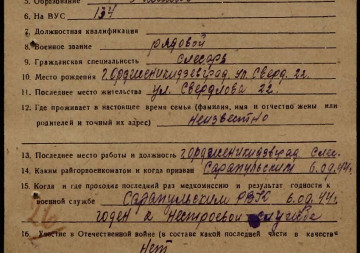 5. Образование
6. На ВУС 134
7. Должностная квалификация
8. Военное звание рядовой
9. Гражданская специальность слесарь
10. Место рождения г. Орджоникидзеград, ул. Сверд. 22.
11. Последнее место жительства ул. Свердлова 22.
12. Где проживает в настоящее время семья (фамилия, имя и отчество жены или
родителей и точный их адрес) неизвестно
13. Последнее место работы и должность г. Орджоникидзеград, слес.
14. Каким райгорвоенкоматом и когда призван Сарапульским 6.09.44 г.
15. Когда и где проходил последний раз медкомиссию и результат годности к
военной службе Сарапульским РВК 6.09.44 г.
годен к нестроевой службе
26
16. Участие в Отечественной войне (в составе какой последней части и в качеств
Нет